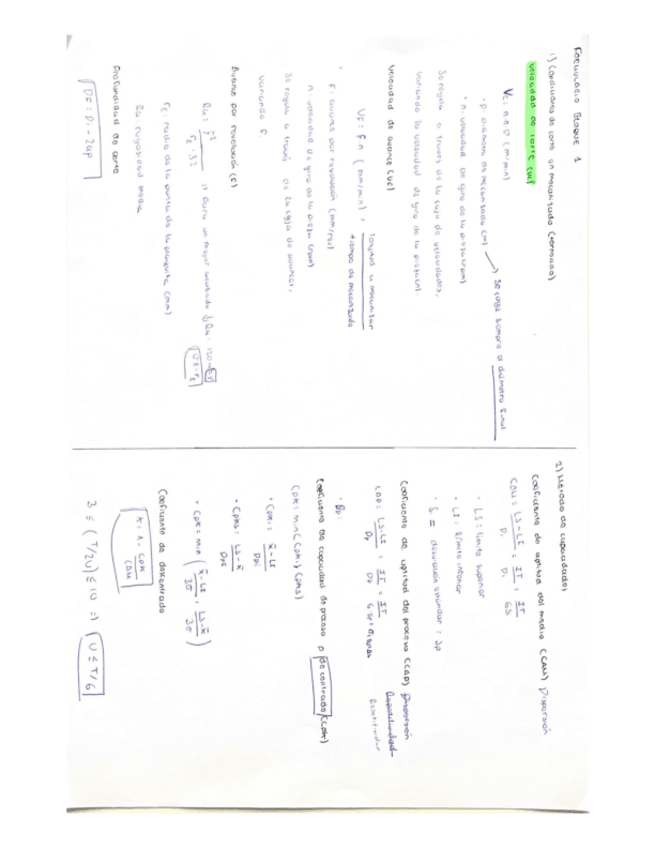 Formulario Bloque 1
1) Condiciones de corte en mecanizado (torneado)
velocidad de corte (Vc)
Vc = π·n·D (m/min)
· D = diámetro de mecanizado (m) → se coge siempre el diámetro final
· n = velocidad de giro de la pieza (rpm)
Se regula a través de la caja de velocidades,
variando la velocidad de giro de la pieza (n).
Velocidad de avance (VF)
VF = F·n (mm/min) = longitud a mecanizar / tiempo de mecanizado
· F: avance por revolución (mm/rev)
n: velocidad de giro de la pieza (rpm)
Se regula a través de la caja de avances,
variando F.
Avance por revolución (F)
Ra = F² / rε · 32
rε: radio de la punta de la plaquita (mm)
Ra: rugosidad media
Profundidad de corte
DF = Di - 2ap
2) Método de capacidades
Coeficiente de aptitud del medio (CAM) Dispersión
CAM = LS-LI / Di = IT / Di = IT / 6S
· LS = límite superior
· LI = límite inferior
· S =
Coeficiente de aptitud del proceso (CAP) Dispersión
CAP = LS-LI / Dp = IT / Dp = IT
· Dp:
Coeficiente de capacidad de proceso o de centrado (CpK)
CpK = min (CpKi, CpKs)
· CpKi = x̄-LI / Dpi
· CpKs = LS-x̄ / Dps
· CpK = min ( x̄-LI / 3σ , LS-x̄ / 3σ )
Coeficiente de descentrado
K = 1 - CpK / CAM
3 ≤ (T/2U) ≤ 10 => U ≤ T/6